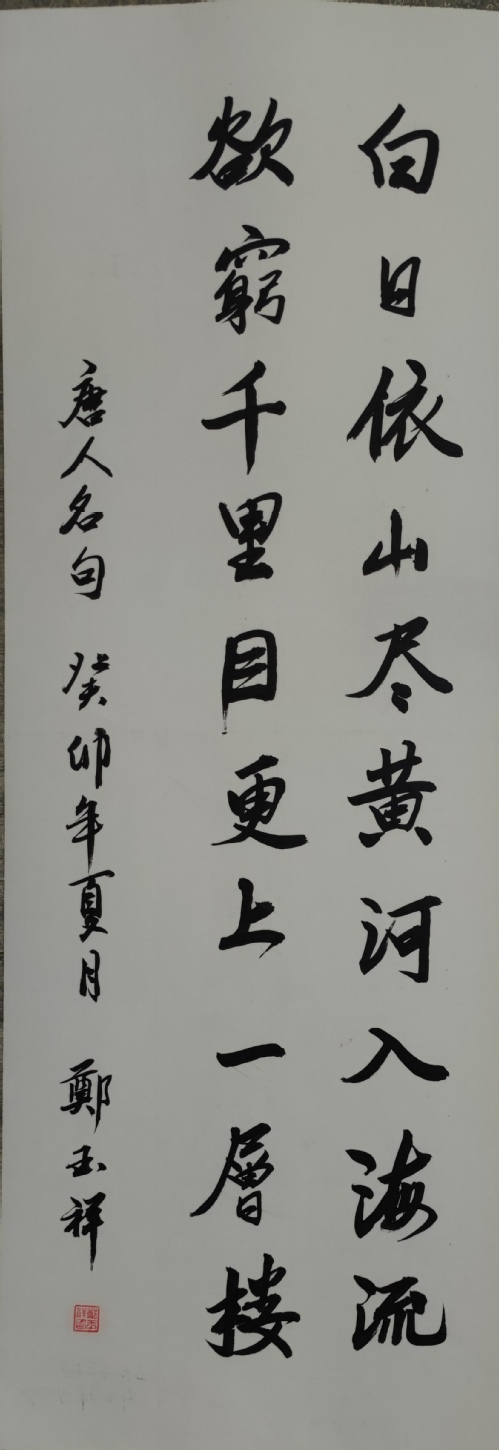 白日依山尽黄河入海流
欲窮千里目更上一層楼
唐人名句 癸卯年夏月 鄭玉祥